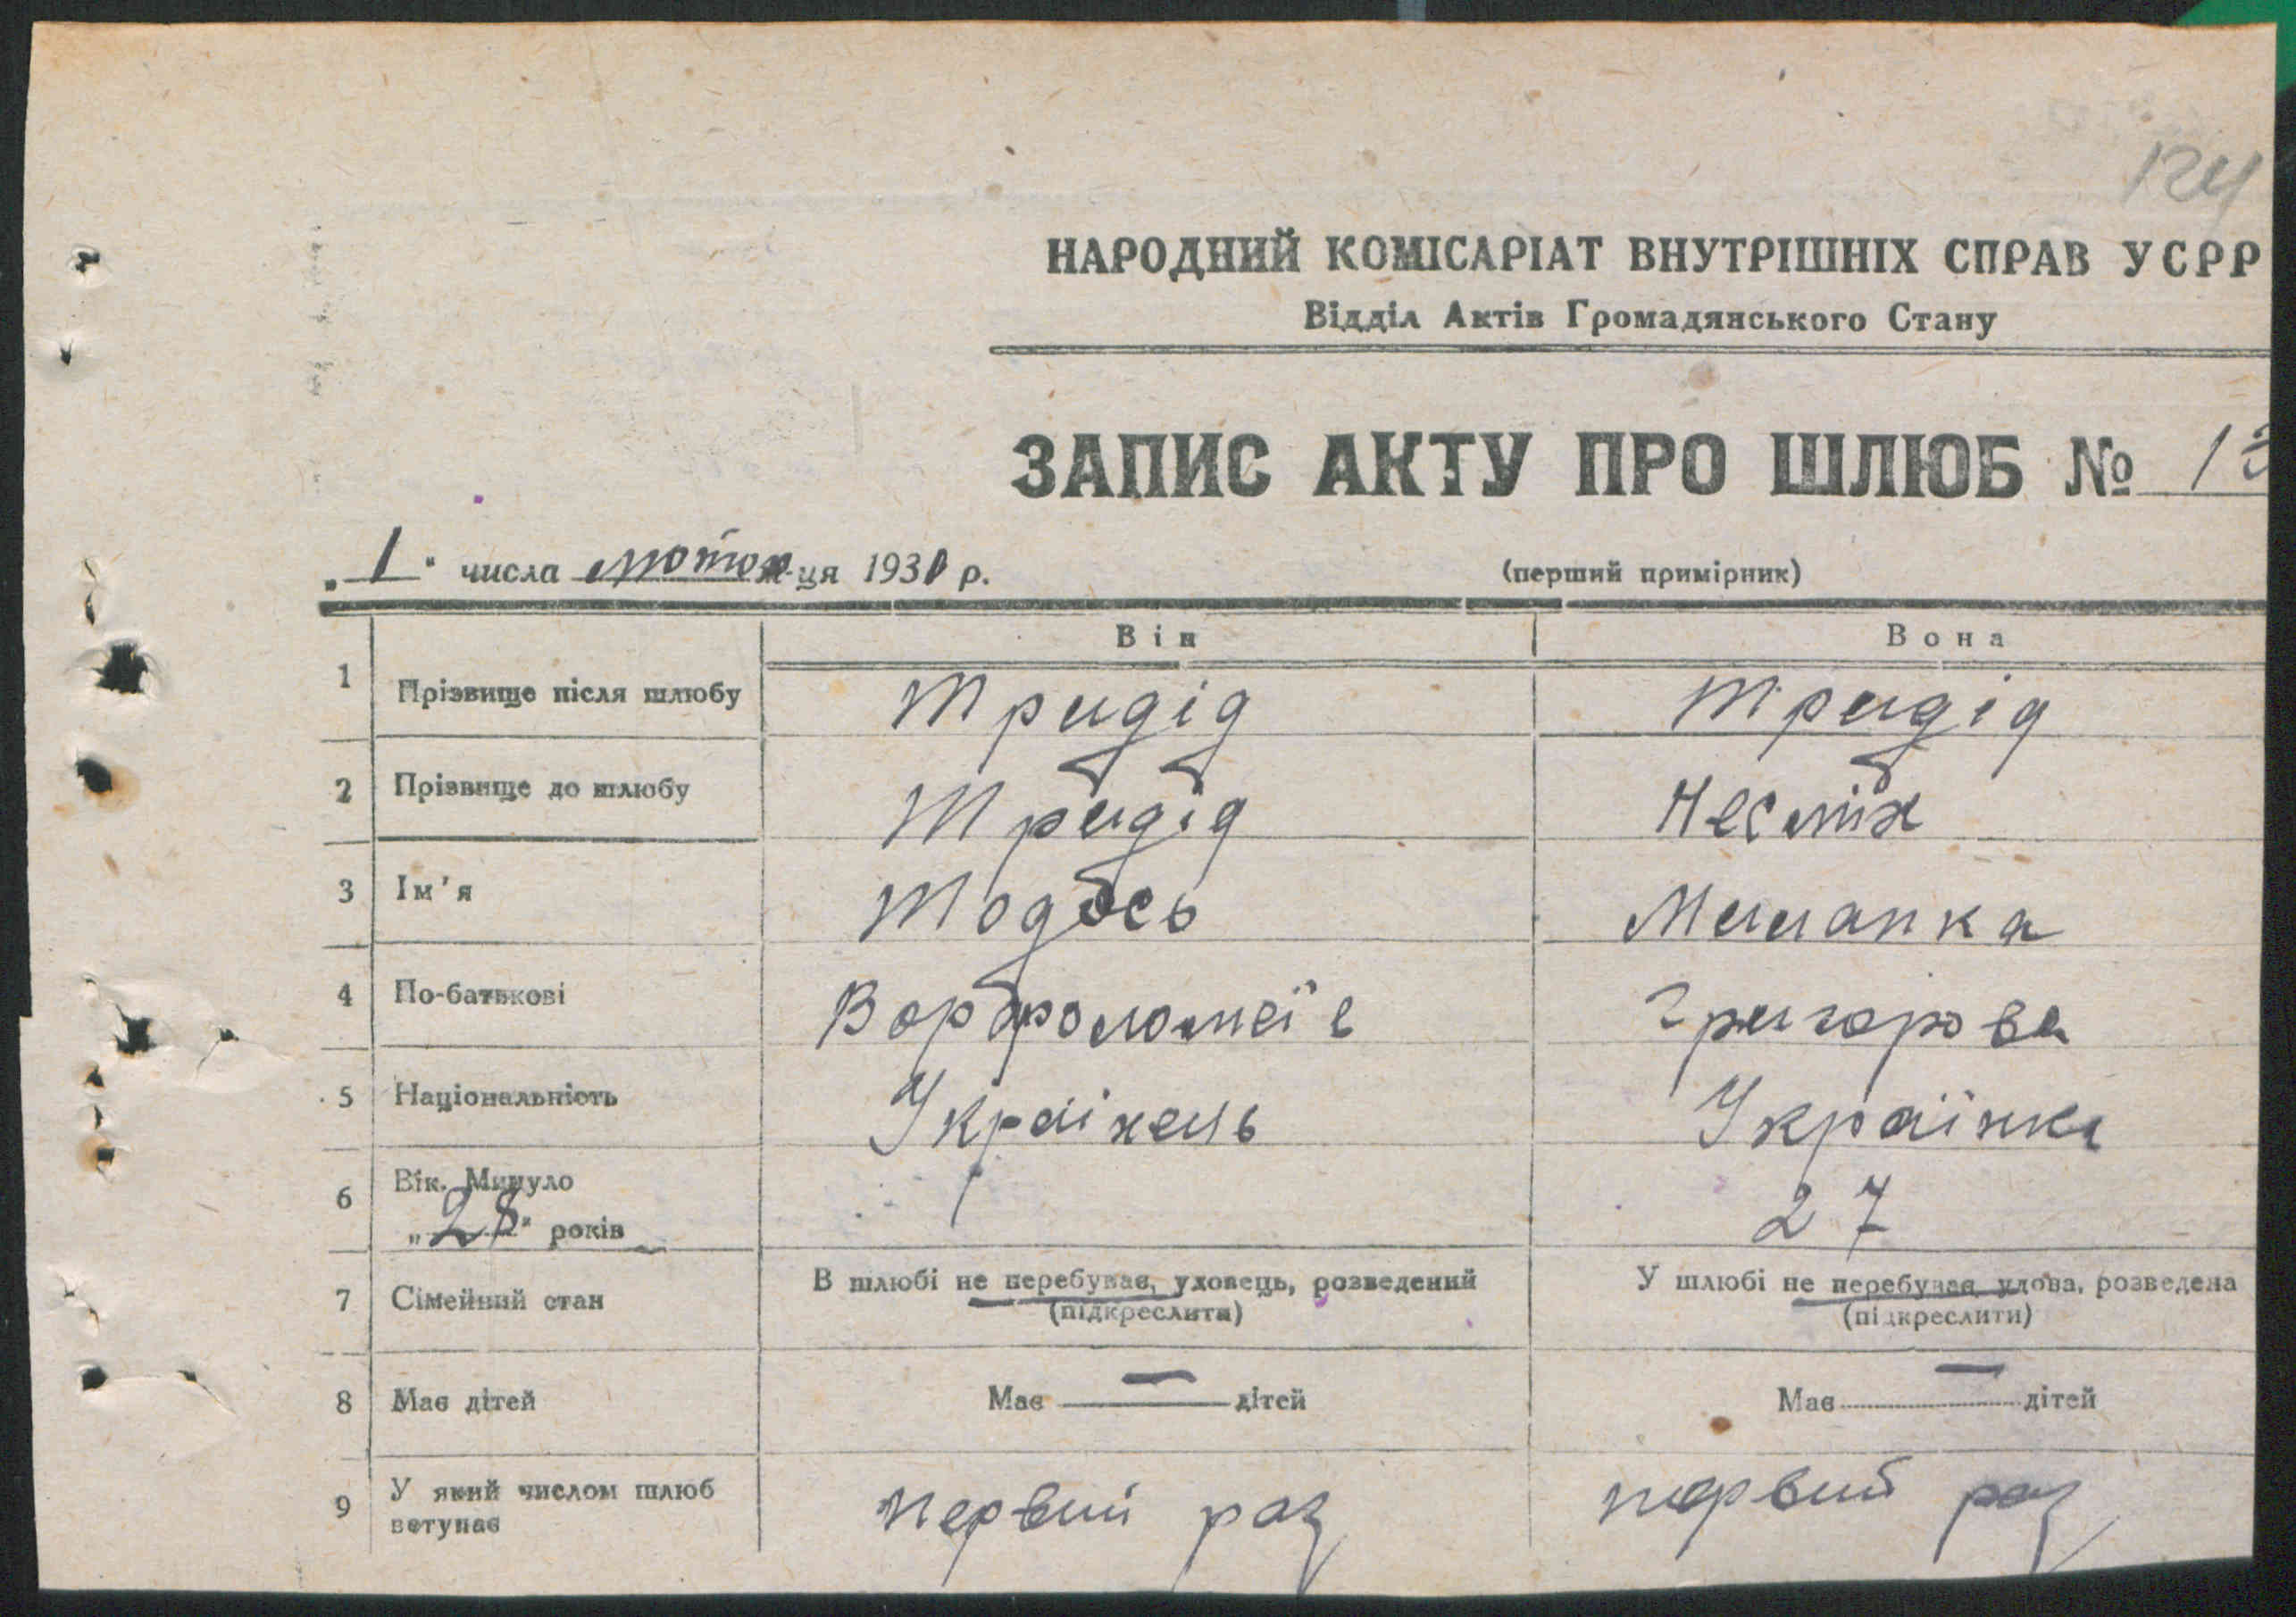 124
НАРОДНИЙ КОМІСАРІАТ ВНУТРІШНІХ СПРАВ УСРР
Відділ Актів Громадянського Стану
ЗАПИС АКТУ ПРО ШЛЮБ № 13
„1" числа лютого м-ця 1931 р. (перший примірник)
Він Вона
1 Прізвище після шлюбу Тридід Тридід
2 Прізвище до шлюбу Тридід
3 Ім'я Тодось Миланка
4 По-батькові Ворфоломеїв Григорова
5 Національність Українець Українка
6 Вік. Минуло „28" років 27
7 Сімейний стан В шлюбі не перебуває, удовець, розведений У шлюбі не перебуває, удова, розведена
(підкреслити) (підкреслити)
8 Має дітей Має — дітей Має — дітей
9 У який числом шлюб вступає первий раз первий раз